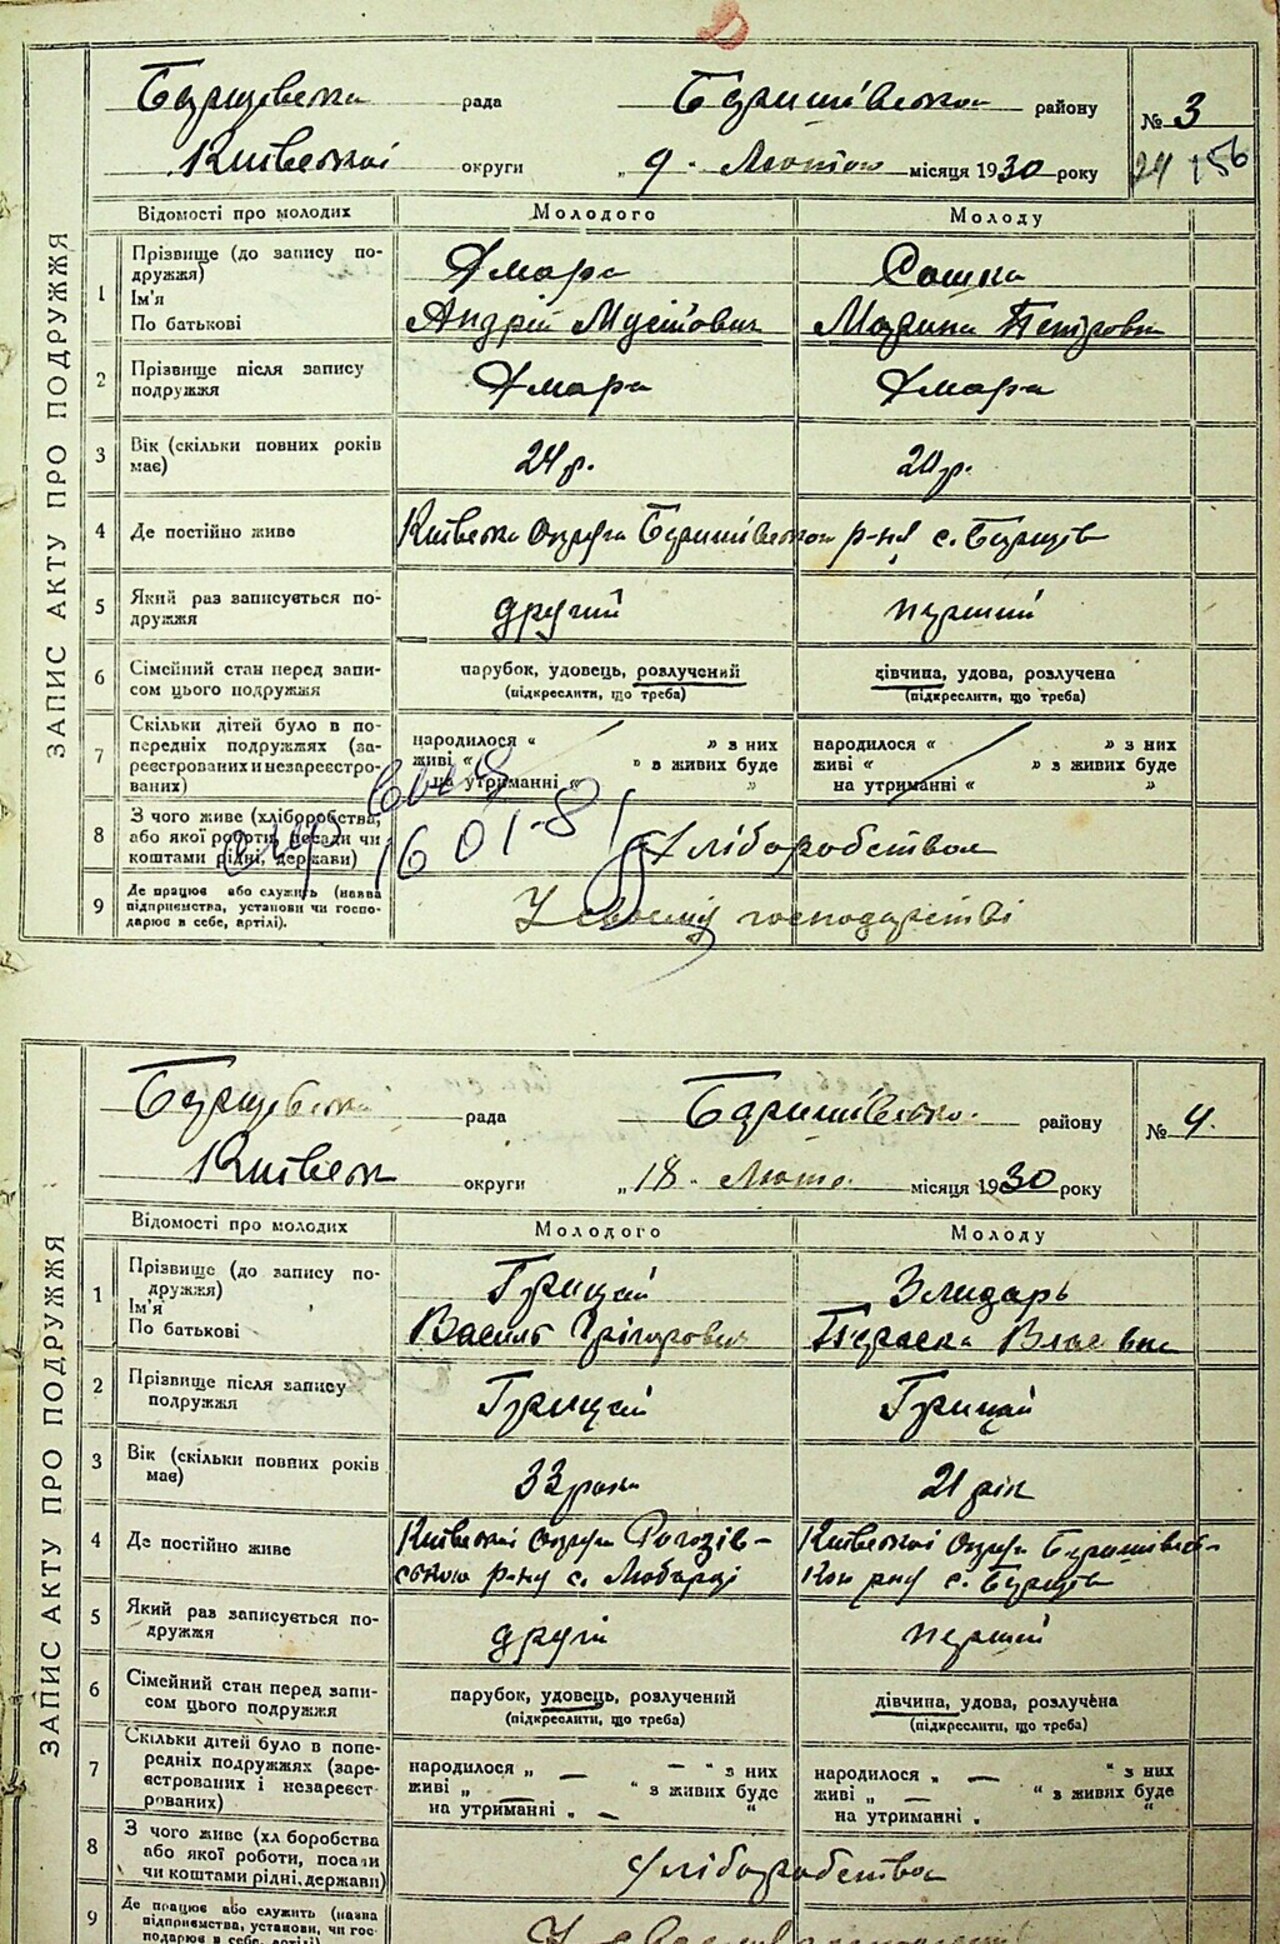 ЗАПИС АКТУ ПРО ПОДРУЖЖЯ
рада Баришівського району № 3
Київської округи „ 9 „ Лютого місяця 1930 року 24 156
Відомості про молодих Молодого Молоду
1 Прізвище (до запису по-
дружжя)
Ім'я
По батькові
Хмара Сашко
Андрій Мусійович Марина Петровна
2 Прізвище після запису
подружжя
Хмара Хмара
3 Вік (скільки повних років
має)
24 р. 20 р.
4 Де постійно живе
Київська Округа Баришівського р-ну с. Борщів
5 Який раз записується по-
дружжя
другий перший
6 Сімейний стан перед запи-
сом цього подружжя
парубок, удовець, розлучений дівчина, удова, розлучена
(підкреслити, що треба) (підкреслити, що треба)
7 Скільки дітей було в по-
передніх подружжях (за-
реєстрованих и незареєстро-
ваних)
народилося „ „ з них народилося „ „ з них
живі „ „ з живих буде живі „ „ з живих буде
на утриманні „ „ на утриманні „ „
8 З чого живе (хліборобства,
або якої роботи, посади чи
коштами рідні, держави)
16 01-81
Хліборобством
9 Де працює або служить (назва
підприємства, установи чи госпо-
дарює в себе, артілі).
У своєму господарстві
ЗАПИС АКТУ ПРО ПОДРУЖЖЯ
рада Баришівсько. району № 4.
Київськ округи „ 18 „ Люто. місяця 1930 року
Відомості про молодих Молодого Молоду
1 Прізвище (до запису по-
дружжя)
Ім'я
По батькові
Грицай Злидарь
Василь Грігорович Параска Власівна
2 Прізвище після запису
подружжя
Грицай Грицай
3 Вік (скільки повних років
має)
33 роки 21 рік
4 Де постійно живе
Київської Округи Рогозів- Київської Округи Баришівсь-
ського р-ну с. Любарці кого рну с. Борщів
5 Який раз записується по-
дружжя
другі перший
6 Сімейний стан перед запи-
сом цього подружжя
парубок, удовець, розлучений дівчина, удова, розлучена
(підкреслити, що треба) (підкреслити, що треба)
7 Скільки дітей було в попе-
редніх подружжях (заре-
єстрованих і незареєст-
рованих)
народилося „ — — “ з них народилося „ — “ з них
живі „ — “ з живих буде живі „ — “ з живих буде
на утриманні „ — “ на утриманні „ “
8 З чого живе (хл боробства
або якої роботи, посади
чи коштами рідні, держави)
Хліборобством
9 Де працює або служить (назва
підприємства, установи, чи гос-
подарює в себе, артілі)